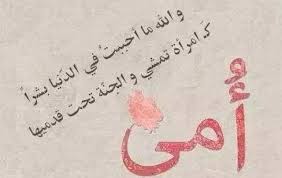 و الله ما احببتُ في الدّنيا بشراً
كَـ امرأة تمشي و الجنّة تحت قدميها
أُمّي